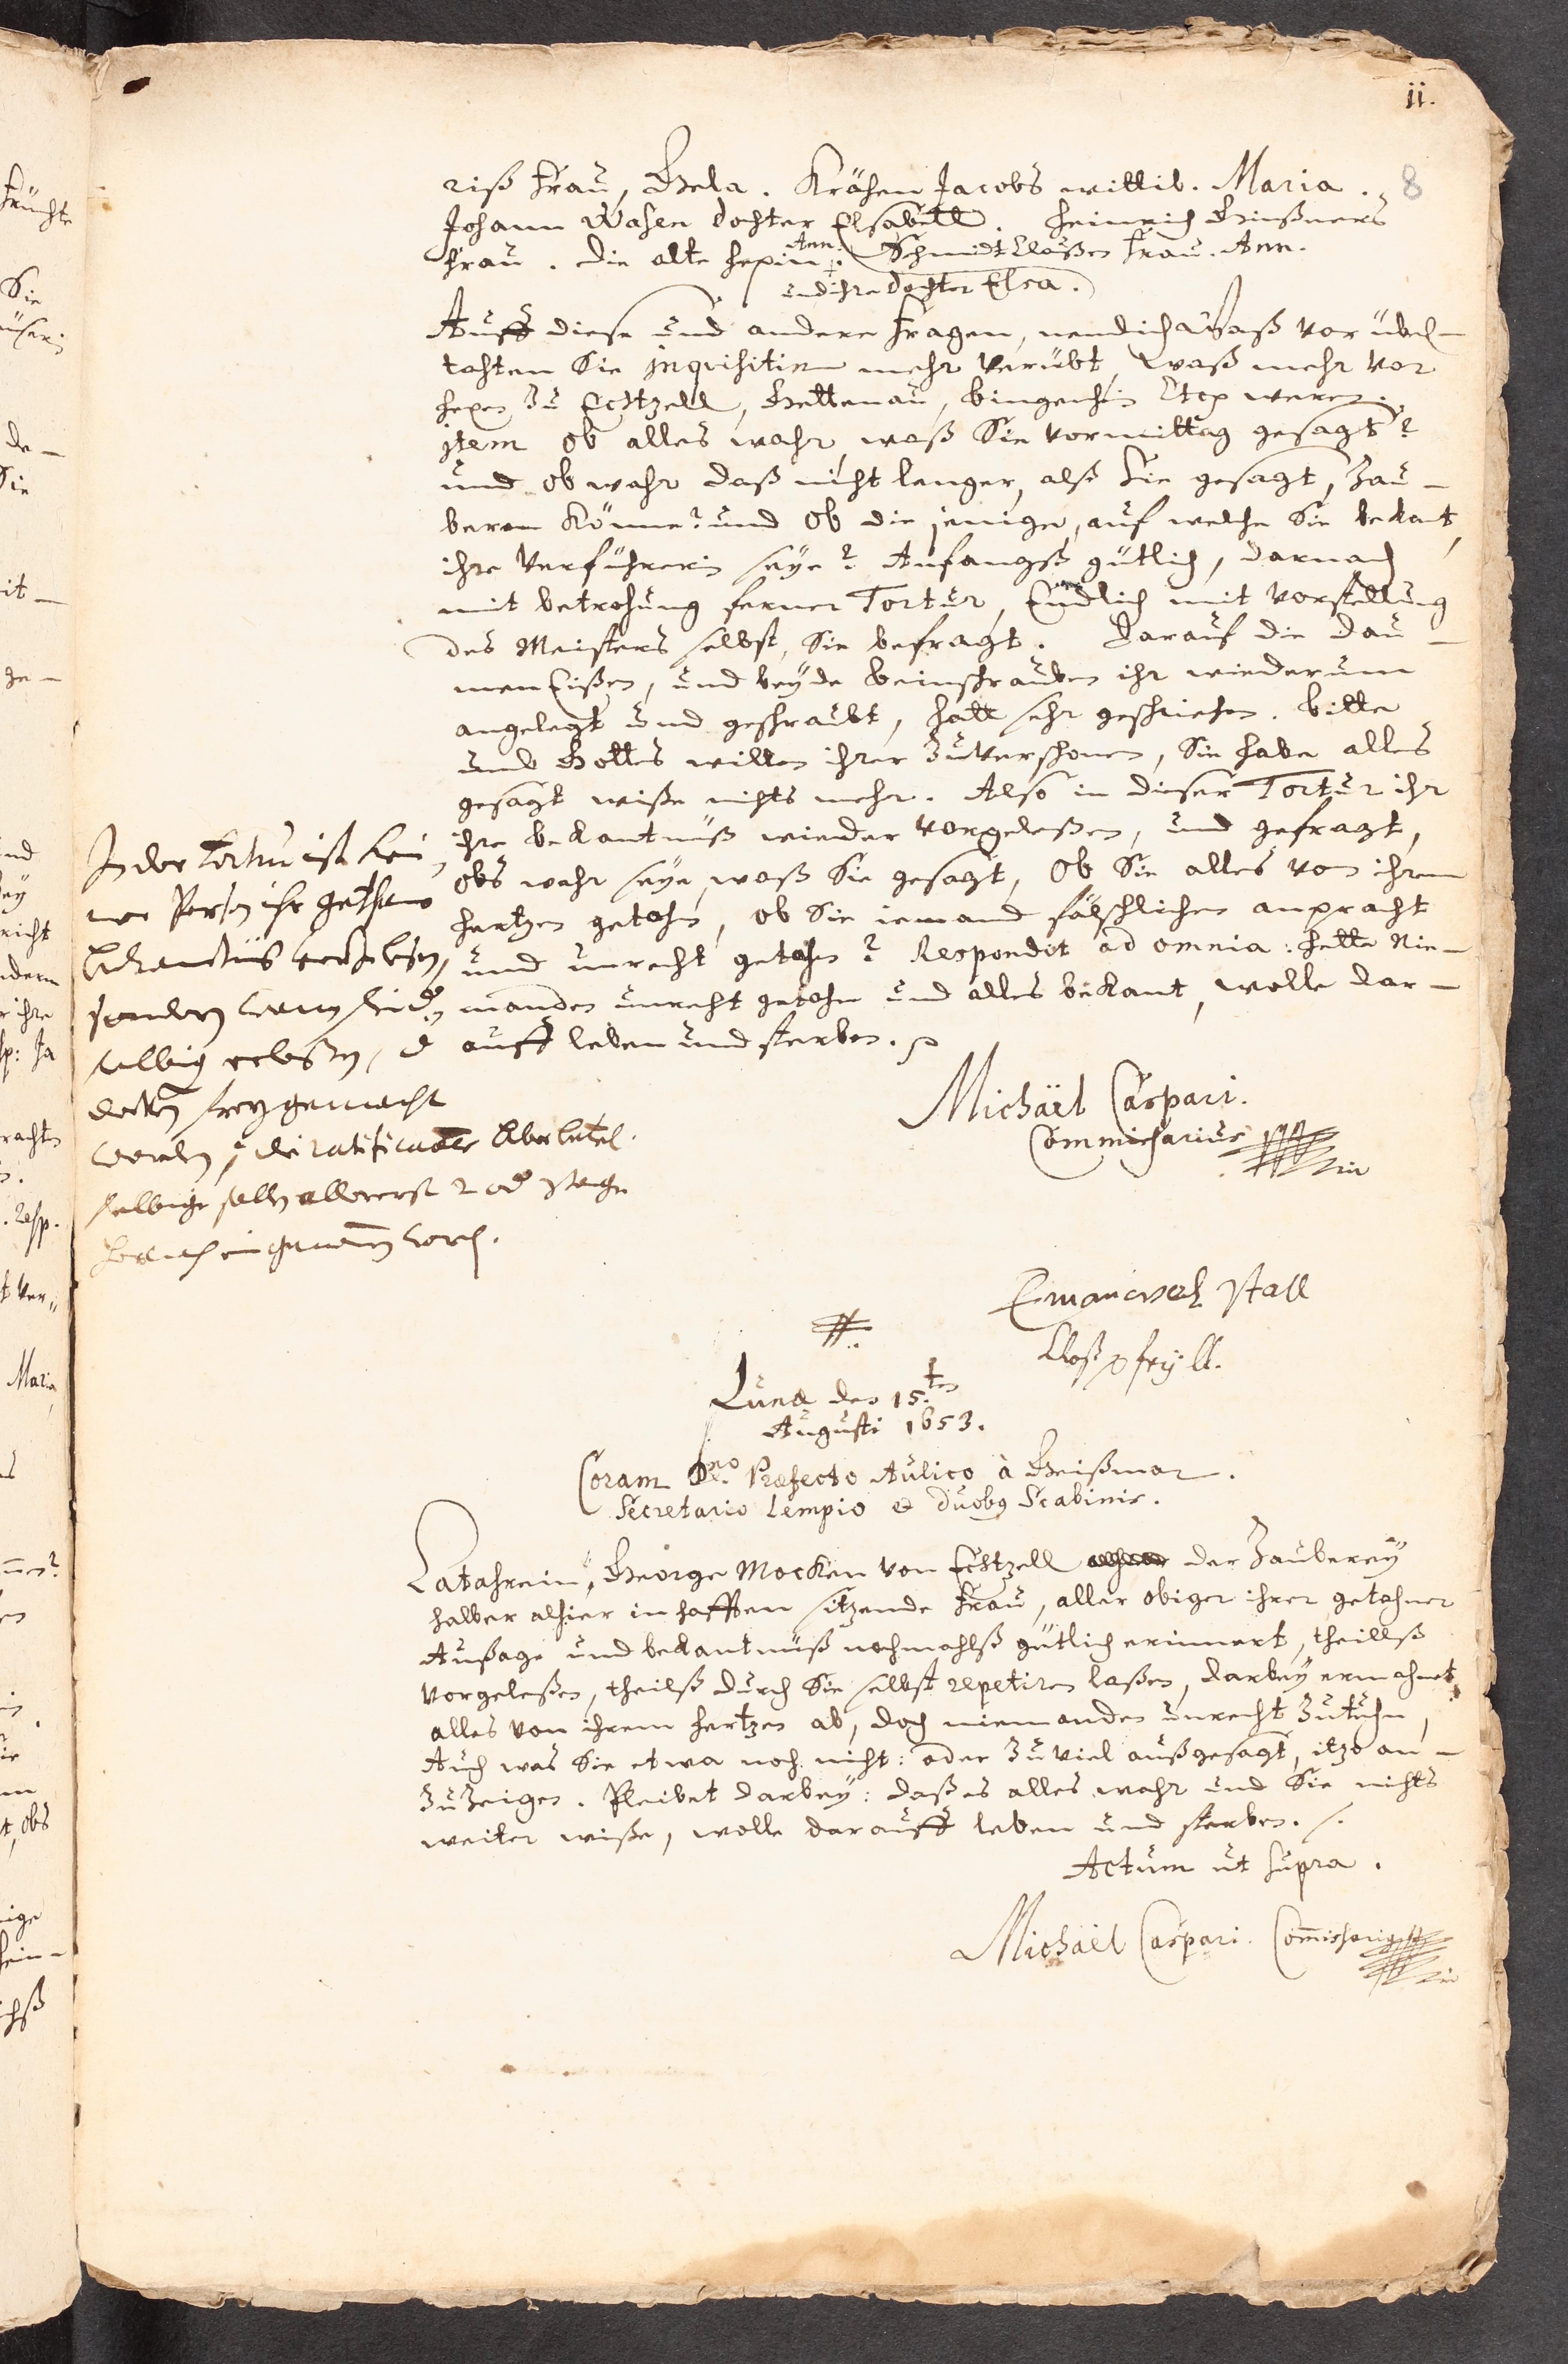 ii.
8
riß Frau, Gela. Krähen Jacobs wittib. Maria.
Johann Wasen dochter Elsabeth. Heinrich Geißners
Frau. die alte hexin: Ann. Schmidt Claußen Frau. Ann.
und ihre dochter Elsa.
Auff diese und andere Fragen, nemlich waß vor übel-
tahten Sie inquisitin mehr verübt, waß mehr vor
hexen zu Echtzell, Gettenau, bingenheim etc weren.
item ob alles wahr, waß Sie vormittag gesagt?
und ob wahr daß nicht lenger, alß Sie gesagt, Zau-
beren könne? und ob die jenige, auf welche Sie bekant,
ihre Verführerin seye? Anfangß gütlich, darnach
mit betrohung ferner Tortur, Endlich mit Vorstellung
des Meisters selbst, Sie befragt. Darauf die dau-
men Eißen, und beyde beinschrauben ihr wiederum
angelegt und geschraubt, hatt sehr geschriehen. bitte
umb Gottes willen ihrer zuverschonen, Sie habe alles
gesagt wiße nichts mehr. Also in dieser Tortur ihr
ihre bekantnuß wieder vorgeleßen, und gefragt,
obs wahr seye, waß Sie gesagt, Ob Sie alles von ihrem
hertzen getahn, ob Sie iemand fälschlichen anpracht
und unrecht getahn? Respondit ad omnia: hette Nie-
manden unrecht getahn und alles bekant, wolle dar-
auff leben und sterben.
In der Tortur ist kei-
ner Person ihr gethane
bekantnüs
sondern
selbig erlaßen,
frey gemacht
worden, die ratification
selbige allererst 2 od 3 tage
hernach eingenommen
Michaël Caspari.
Commissarius
Emanuel Stall
Luna den 15.ten
Augusti 1653.
Coram Dno. Præfecto Aulico à Geißmar.
Secretario Lempio et duobus Scabinis.
Catahrein, George Mocken von Echtzell der Zauberey
halber alhier in hafften sitzende Frau, aller obiger ihrer getahner
Außage und bekantnuß nochmahlß gütlich erinnert, theillß
vorgeleßen, theilß durch Sie selbst repetiren laßen, darbey ermahnet,
alles von ihrem hertzen ab, doch niemanden unrecht zutuhn,
Auch was Sie etwa noch nicht: oder zu viel außgesagt, itzo an-
zuzeigen. Pleibet darbey: daß es alles wahr und Sie nichts
weiter wiße, wolle darauff leben und sterben.
Actum ut supra.
Michaël Caspari. Commissarius